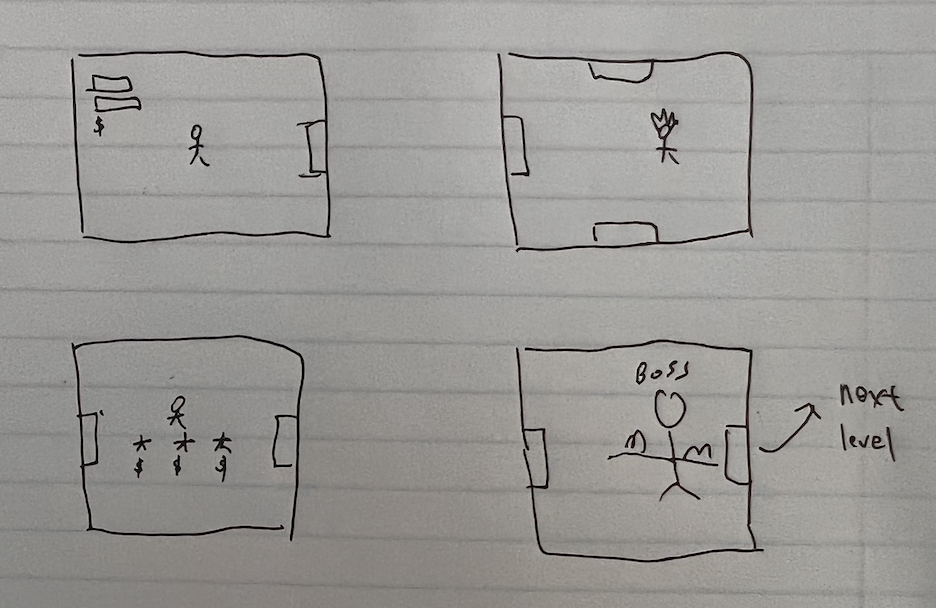 $
$ $ $
BOSS
next
level